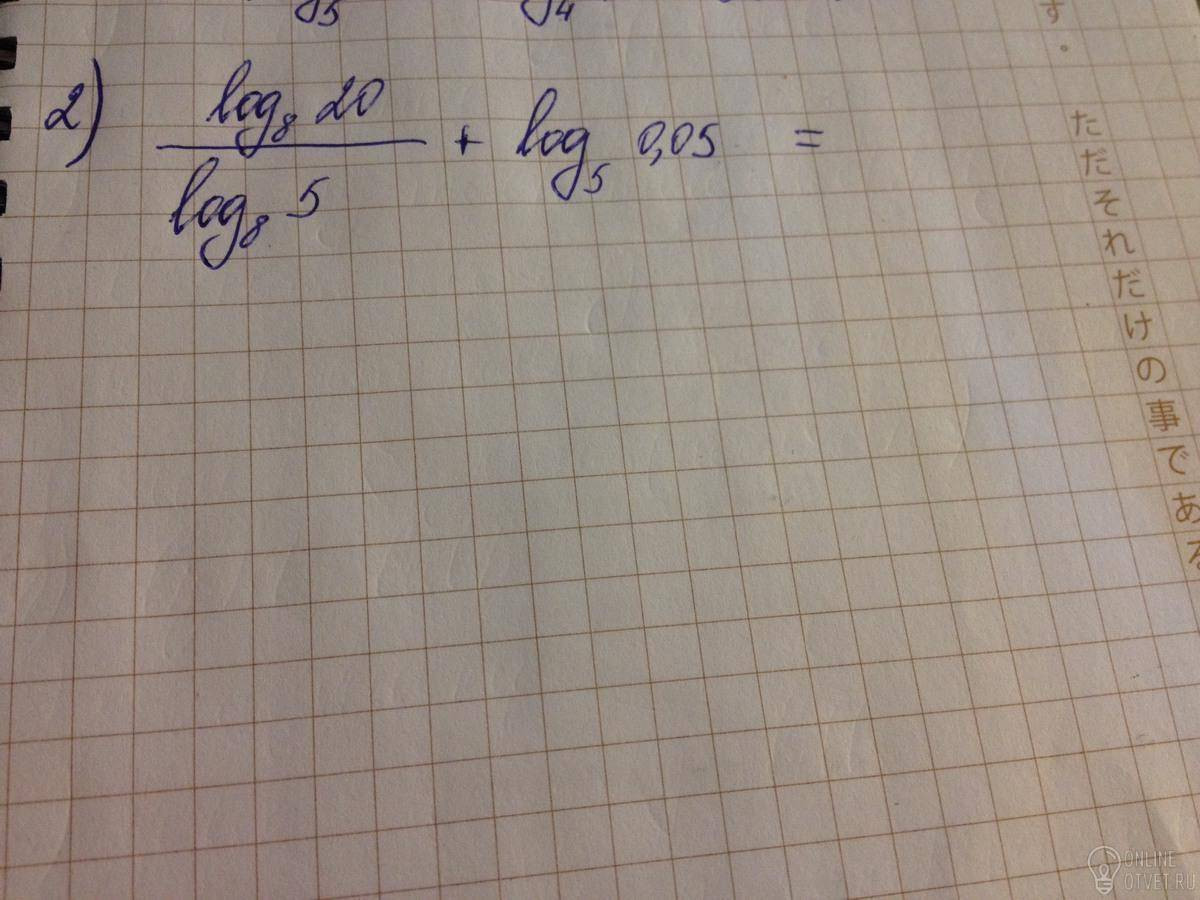 2) log₈ 20 / log₈ 5 + log₅ 0,05 =
す。
ただそれだけの事である
ONLINE
OTVET.RU